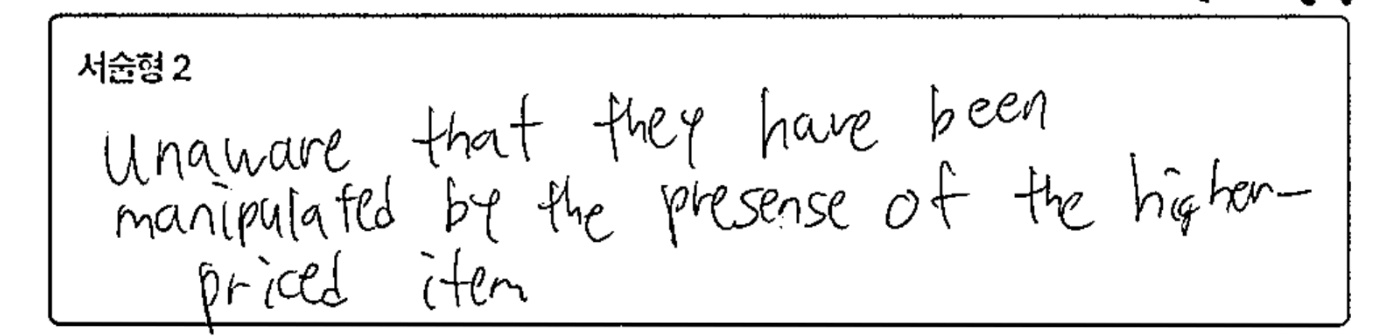 서술형 2
Unaware that they have been
manipulated by the presense of the higher-
priced item